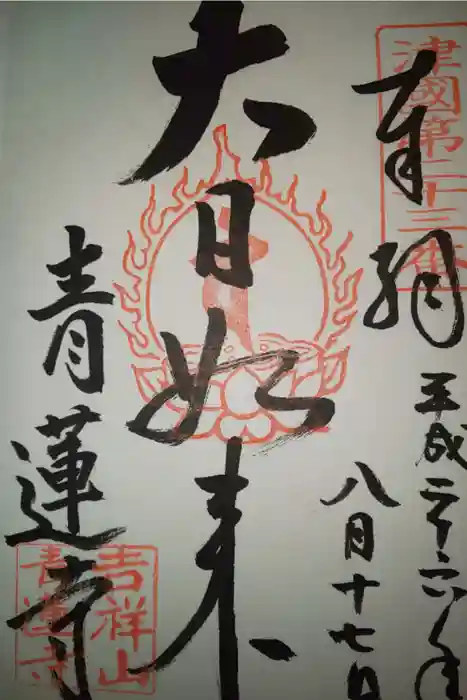 津國第二十三番
奉拝
平成二十六年
八月十七日
大日如来
青蓮寺
吉祥山
青蓮寺